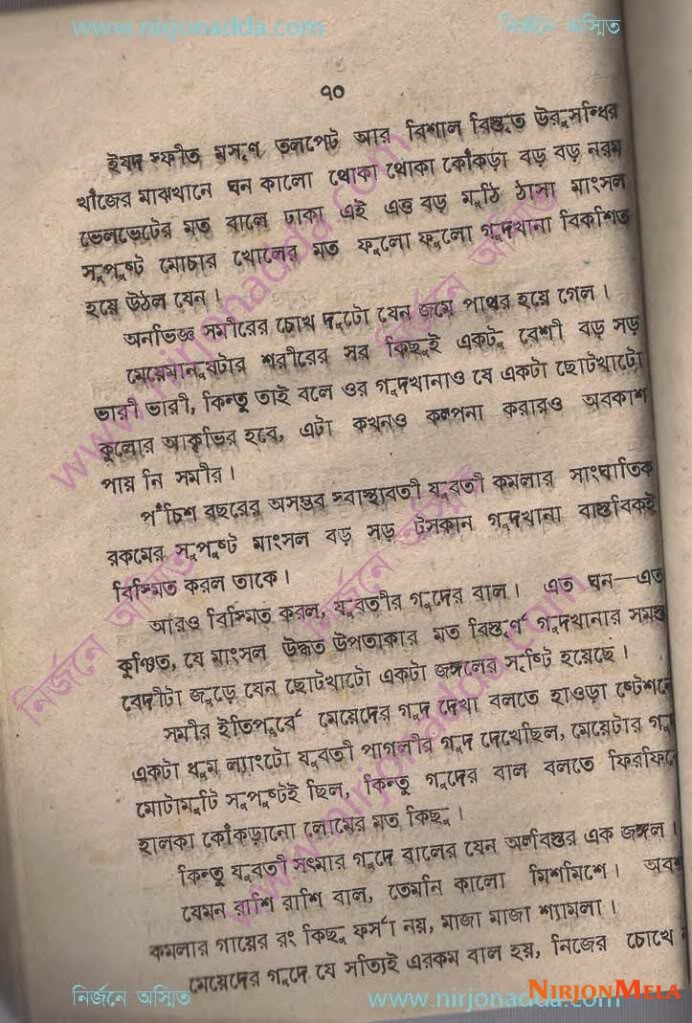 www.nirjonadda.com নির্জনে অস্মিত
৭০
ইষদ স্ফীত মসৃণ তলপেট আর বিশাল বিস্তৃত উরুসন্ধির
খাঁজের মাঝখানে ঘন কালো থোকা থোকা কোঁকড়া বড় বড় নরম
ভেলভেটের মত বালে ঢাকা এই এত্ত বড় মুঠি ঠাসা মাংসল
সুপুষ্ট মোচার খোলের মত ফুলো ফুলো গুদখানা বিকশিত
হয়ে উঠল যেন।
অনভিজ্ঞ সমীরের চোখ দুটো যেন জমে পাথর হয়ে গেল।
মেয়েমানুষটার শরীরের সব কিছুই একটু বেশী বড় সড়
ভারী ভারী, কিন্তু তাই বলে ওর গুদখানাও যে একটা ছোটখাটো
কুলোর আকৃতির হবে, এটা কখনও কল্পনা করারও অবকাশ
পায় নি সমীর।
পঁচিশ বছরের অসম্ভব স্বাস্থ্যবতী যুবতী কমলার সাংঘাতিক
রকমের সুপুষ্ট মাংসল বড় সড় টসকান গুদখানা বাস্তবিকই
বিস্মিত করল তাকে।
আরও বিস্মিত করল, যুবতীর গুদের বাল। এত ঘন—এত
কুঞ্চিত, যে মাংসল উদ্ধত উপত্যকার মত বিস্তীর্ণ গুদখানার সমস্ত
বেদীটা জুড়ে যেন ছোটখাটো একটা জঙ্গলের সৃষ্টি হয়েছে।
সমীর ইতিপূর্বে মেয়েদের গুদ দেখা বলতে হাওড়া ষ্টেশনে
একটা ধুম ল্যাংটো যুবতী পাগলীর গুদ দেখেছিল, মেয়েটার গুদ
মোটামুটি সুপুষ্টই ছিল, কিন্তু গুদের বাল বলতে ফিরফিরে
হালকা কোঁকড়ানো লোমের মত কিছু।
কিন্তু যুবতী সৎমার গুদে বালের যেন অলবস্তর এক জঙ্গল।
যেমন রাশি রাশি বাল, তেমনি কালো মিশমিশে। অবশ্য
কমলার গায়ের রং কিছু ফর্সা নয়, মাজা মাজা শ্যামলা।
মেয়েদের গুদে যে সত্যিই এরকম বাল হয়, নিজের চোখে
নির্জনে অস্মিত www.nirjonadda.com
NIRJONMELA